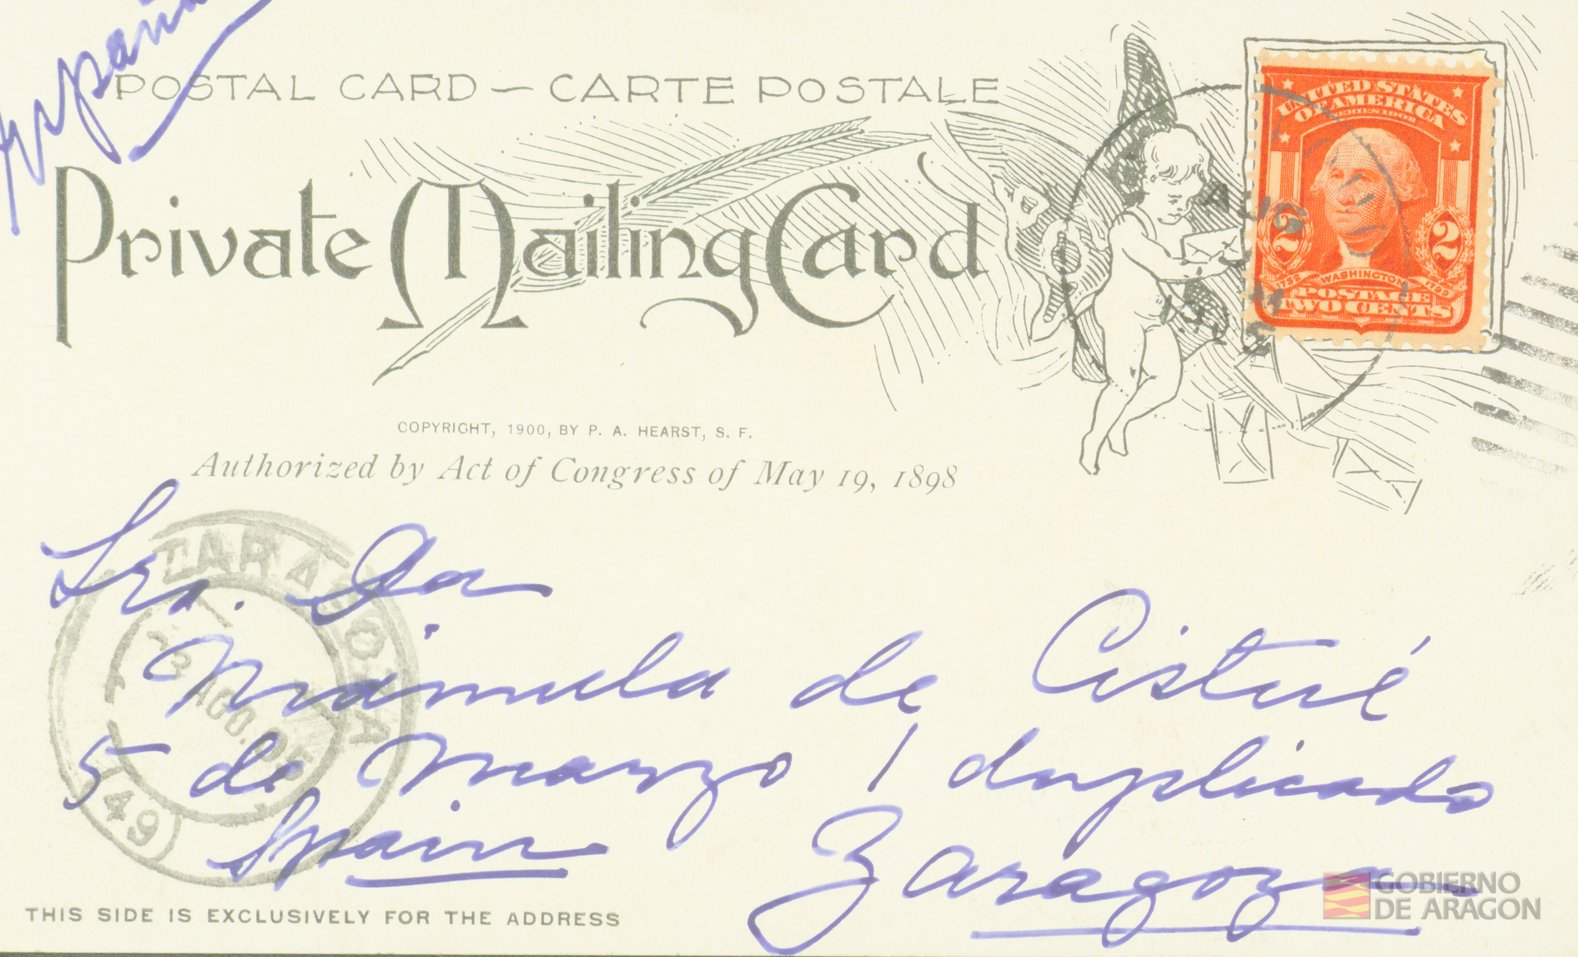 España
POSTAL CARD — CARTE POSTALE
Private Mailing Card
UNITED STATES
OF AMERICA
SERIES 1902
2 2
1732 WASHINGTON 1799
POSTAGE
TWO CENTS
AUG
COPYRIGHT, 1900, BY P. A. HEARST, S. F.
Authorized by Act of Congress of May 19, 1898
ZARAGOZA
13 AGO. 05
(49)
Sra. Da
de Cistué
5 de Marzo 1 duplicado
Spain Zaragoza
THIS SIDE IS EXCLUSIVELY FOR THE ADDRESS
GOBIERNO
DE ARAGON